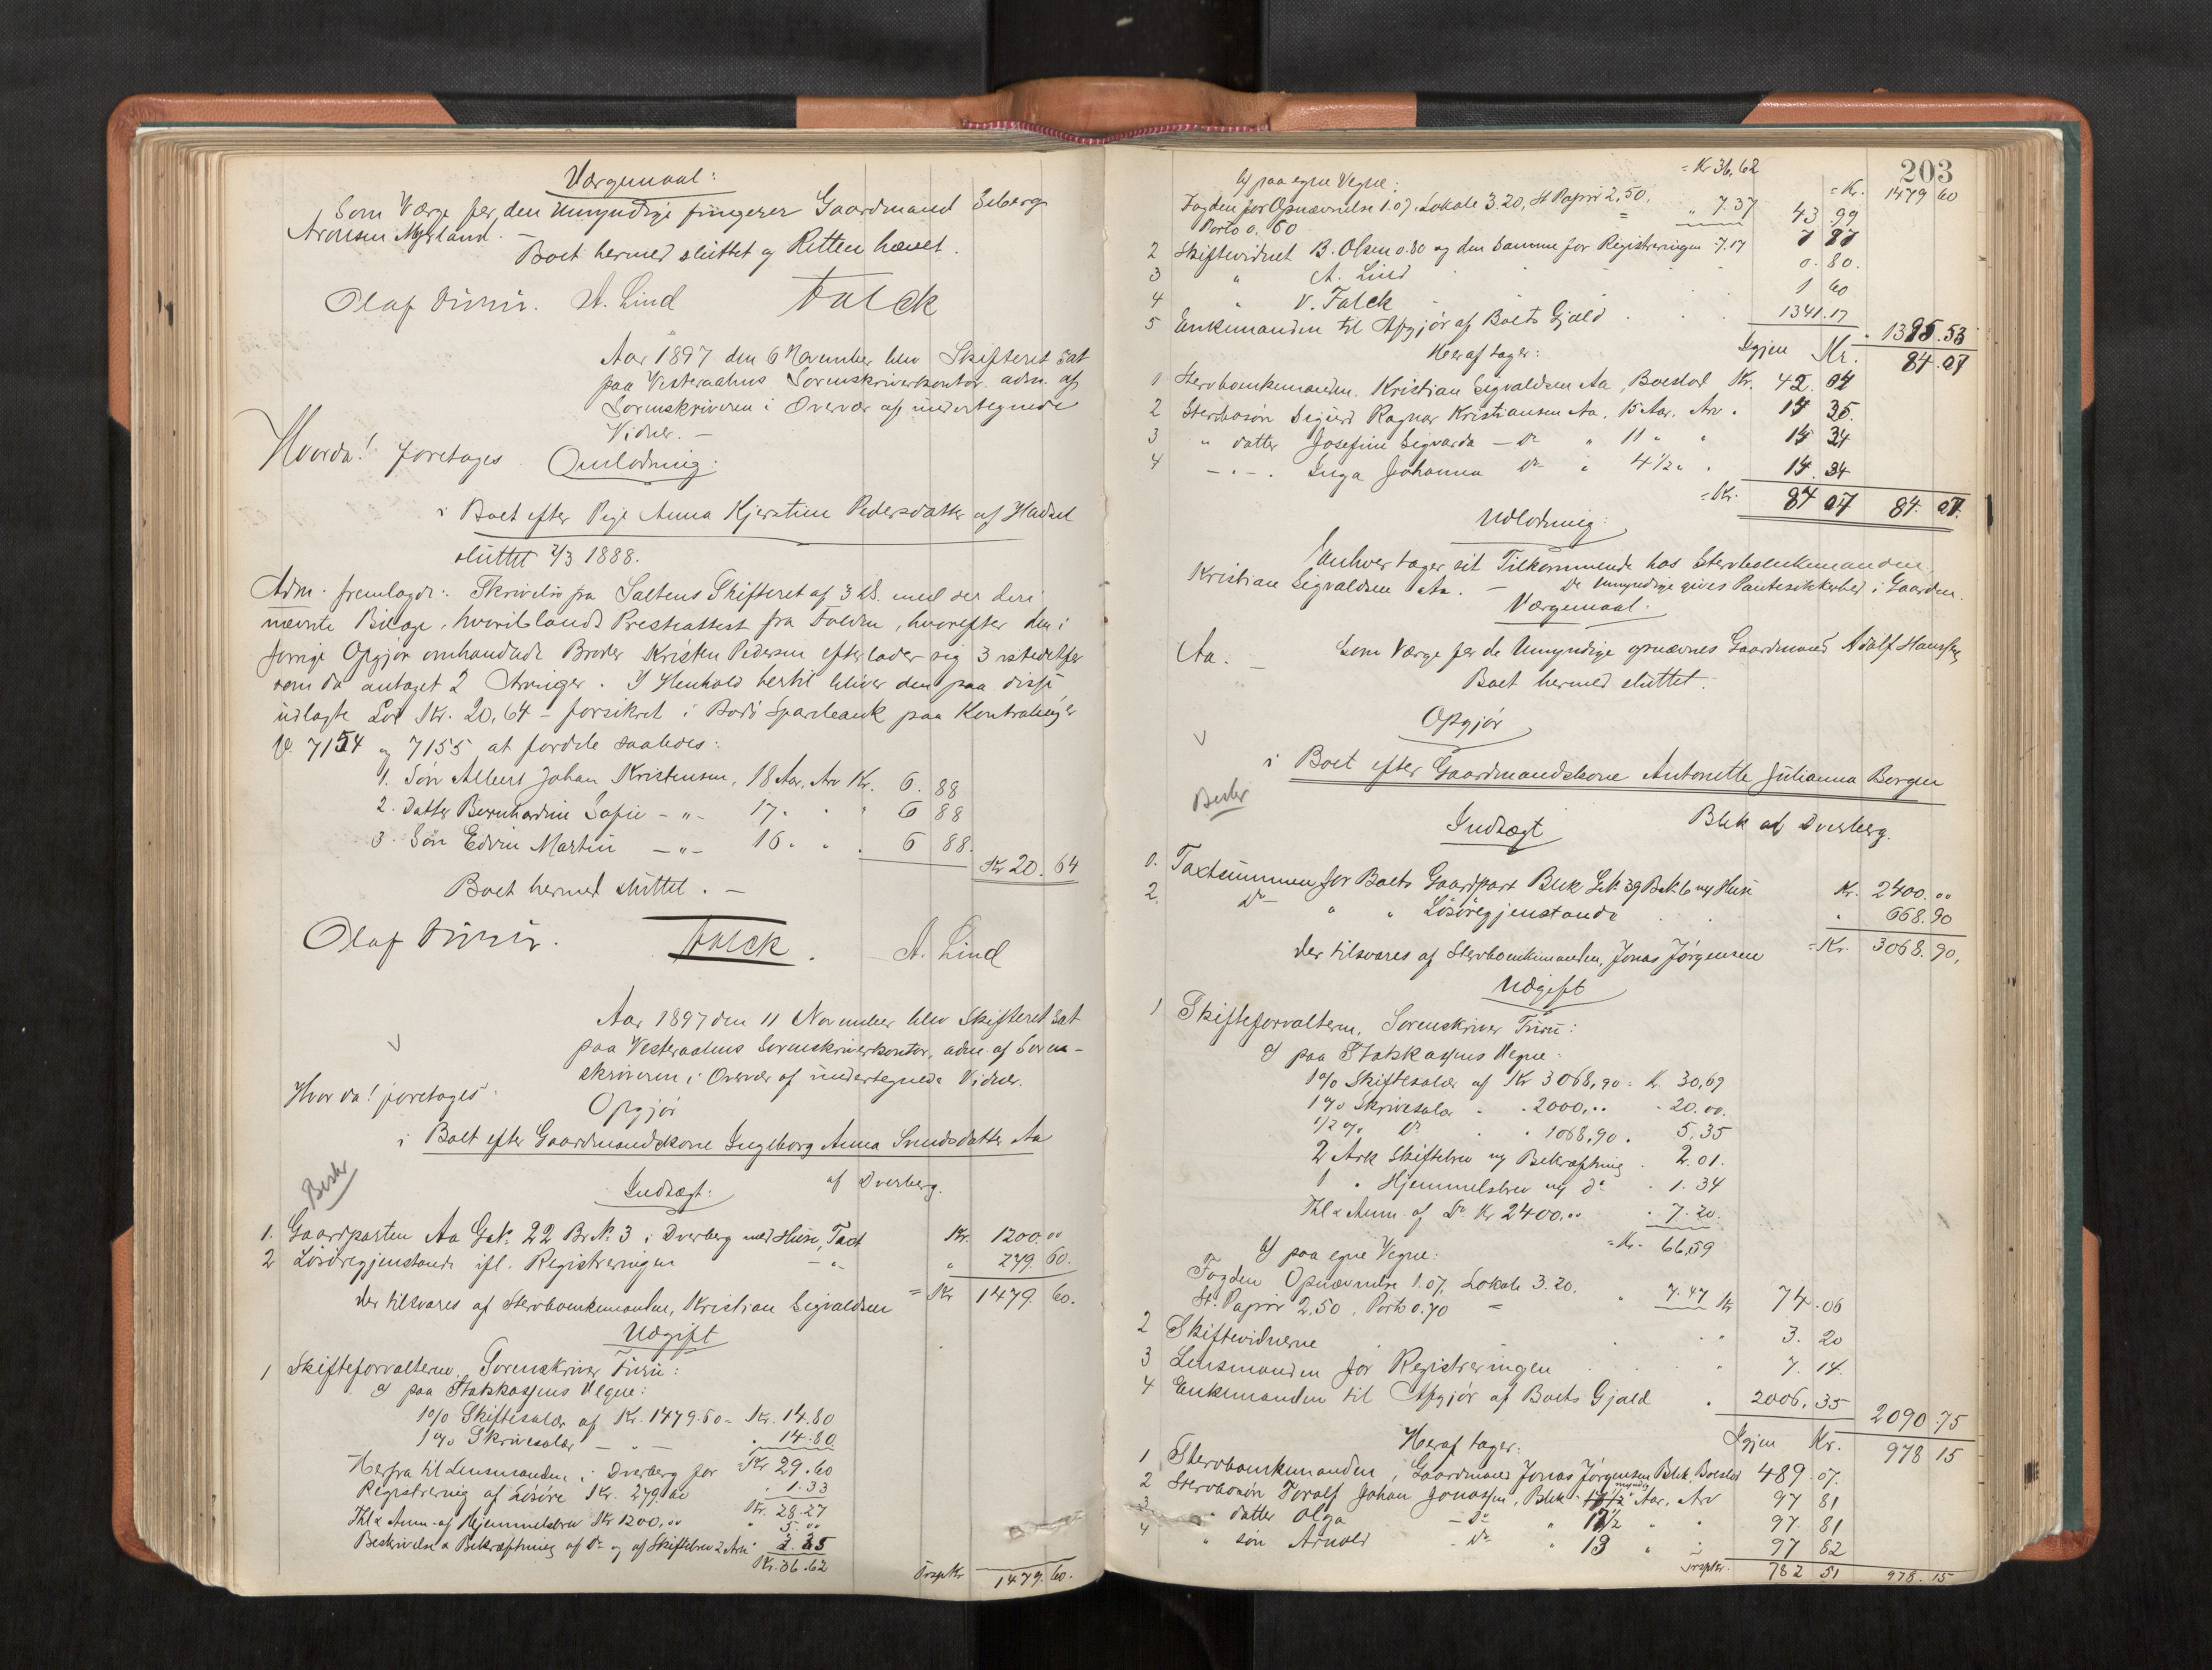 Værgemaal:
Som Værge for den Umyndige fungerer Gaardmand Esberg
Aronsen Myrland. —
Boet hermed sluttet og Retten hævet.
Olaf A. Lind Falck
Aar 1897 den 6 November blev Skifteret sat
paa Vesteraalens Sorenskriverkontor adm. af
Sorenskriveren i Overvær af undertegnede
Vidner. —
Hvorda! foretages Omlodning:
i Boet efter Pige Anna Kjerstine Pedersdatter af Hadsel
sluttet 2/3 1888.
Adm. fremlagde: Skrivelse fra Saltens Skifteret af 3 ds. med der deri
nævnte Bilage, hvoriblandt Presteattest fra Folden, hvorefter den i
forrige Opgjør omhandlede Broder Kristen Pedersen efterlader sig 3 istedetfor
som da antaget 2 Arvinger. I Henhold hertil bliver den paa disse
udlagte Lod Kr. 20,64 - forsikret i Bodø Sparebank paa Kontrabøger
No. 7154 og 7155 at fordele saaledes:
1. Søn Albert Johan Kristensen, 18 Aar, Arv Kr. 6. 88
2. Datter Bernhardine Sofie - " - 17 " " " 6 88
3. Søn Edvin Martin - " - 16 " " . 6 88.
Kr 20. 64
Boet hermed sluttet. —
Olaf Falck. A. Lind
Aar 1897 den 11 November blev Skifteret sat
paa Vesteraalens Sorenskriverkontor, adm. af Soren-
skriveren i Overvær af undertegnede Vidner.
Hvor da! foretages:
Opgjør
i Boet efter Gaardmandskone Ingeborg Anna Svendsdatter Aa
af Dverberg.
Beskr
Indtægt:
1. Gaardparten Aa Gn. 22 Br. N. 3 i Dverberg med Huse, Taxt Kr. 1200.00
2 Løsøregjenstande ifl. Registreringen - " - " 279. 60.
der tilsvares af Stervboenkemanden, Kristian Sigvaldsen = Kr 1479. 60.
Udgift
1 Skifteforvalteren, Sorenskriver :
a) paa Statskassens Vegne:
1% Skiftesalær af Kr. 1479.60 = Kr. 14.80
1% Skrivesalær — " — " 14.80
= Kr 29.60
Herfra til Lensmanden i Dverberg for
Registrering af Løsøre Kr. 279,60 " 1.33
Kr. 28.27
Thl & Anm. af Hjemmelsbrev Kr 1200,00 " 5.00
Beskrivelse & Bekræftning af Do og af Skiftebrev 2 Ark 3.35
Kr. 36.62
Trsp Kr 1479. 60.
203
= Kr 36,62 = Kr. 1479 60
b) paa egne Vegne:
Fogden for Opnævnelse 1.07, Lokale 3.20, St Papir 2,50,
Porto 0.60 = " 7.37 43 99
2 Skiftevidnet B. Olsen 0.80 og den Samme for Registreringen 7.17 7 87
3 " A. Lind 0.80.
4 " V. Falck 1 60
5 Enkemanden til Afgjør af Boets Gjæld . . . 1341.17 1395.53
Heraf tager: Igjen Kr. 84.07
1 Stervboenkemanden Kristian Sigvaldsen Aa, Boeslod Kr. 42. 04
2 Stervbosøn Sigurd Ragnar Kristiansen Aa, 15 Aar, Arv " 14 35.
3 " datter Josefine Sigvarda — Do " 11 " " 14 34
4 — " — Inga Johanna Do " 4½ " " 14. 34
= Kr. 84 07 84. 07.
Udlodning:
Enhver tager sit Tilkommende hos Stervboenkemanden
Kristian Sigvaldsen Aa. — De Umyndige gives Pantesikkerhed i Gaarden.
Værgemaal:
Som Værge for de Umyndige opnævnes Gaardmand Adolf Hanssen
Aa. —
Boet hermed sluttet.
Opgjør
i Boet efter Gaardmandskone Antonette Julianna Borgen
Beskr
Blek af Dverberg.
Indtægt
1. Taxtsummen for Boets Gaardpart Blek Gn 39 Bn 6 med Huse Kr. 2400.00
2. Do " " Løsøregjenstande . . " 668.90
der tilsvares af Stervboenkemanden, Jonas Jørgensen = Kr. 3068.90,
Udgift
1 Skifteforvalteren, Sorenskriver :
a) paa Statskassens Vegne:
1% Skiftesalær af Kr 3068,90 = K. 30,69
1% Skrivesalær " " 2000,.. " 20.00.
1/2% Do " " 1068,90 " 5,35
2 Ark Skiftebrev og Bekræftning . 2.01.
1 " Hjemmelsbrev og do . 1.34
Thl & Anm. af Do Kr 2400,00 " 7.20.
= Kr. 66,59
b) paa egne Vegne:
Fogden Opnævnelse 1.07, Lokale 3.20,
St. Papir 2,50, Porto 0.70 = " 7.47 Kr 74.06
2 Skiftevidnerne " 3. 20
3 Lensmanden for Registreringen " 7. 14.
4 Enkemanden til Afgjør af Boets Gjæld . 2006. 35 2090.75
Heraf tager: Igjen Kr. 978 15
1 Stervboenkemanden, Gaardmand Jonas Jørgensen Blek, Boeslod 489.07.
2 Stervbosøn Toralf Johan Jonassen, Blek myndig 17½ Aar, Arv 97 81
3 " datter Olga — Do " 17½ " " 97 81
4 " søn Arnold Do " 13 " " 97 82
Trsp Kr. 782 51 978. 15